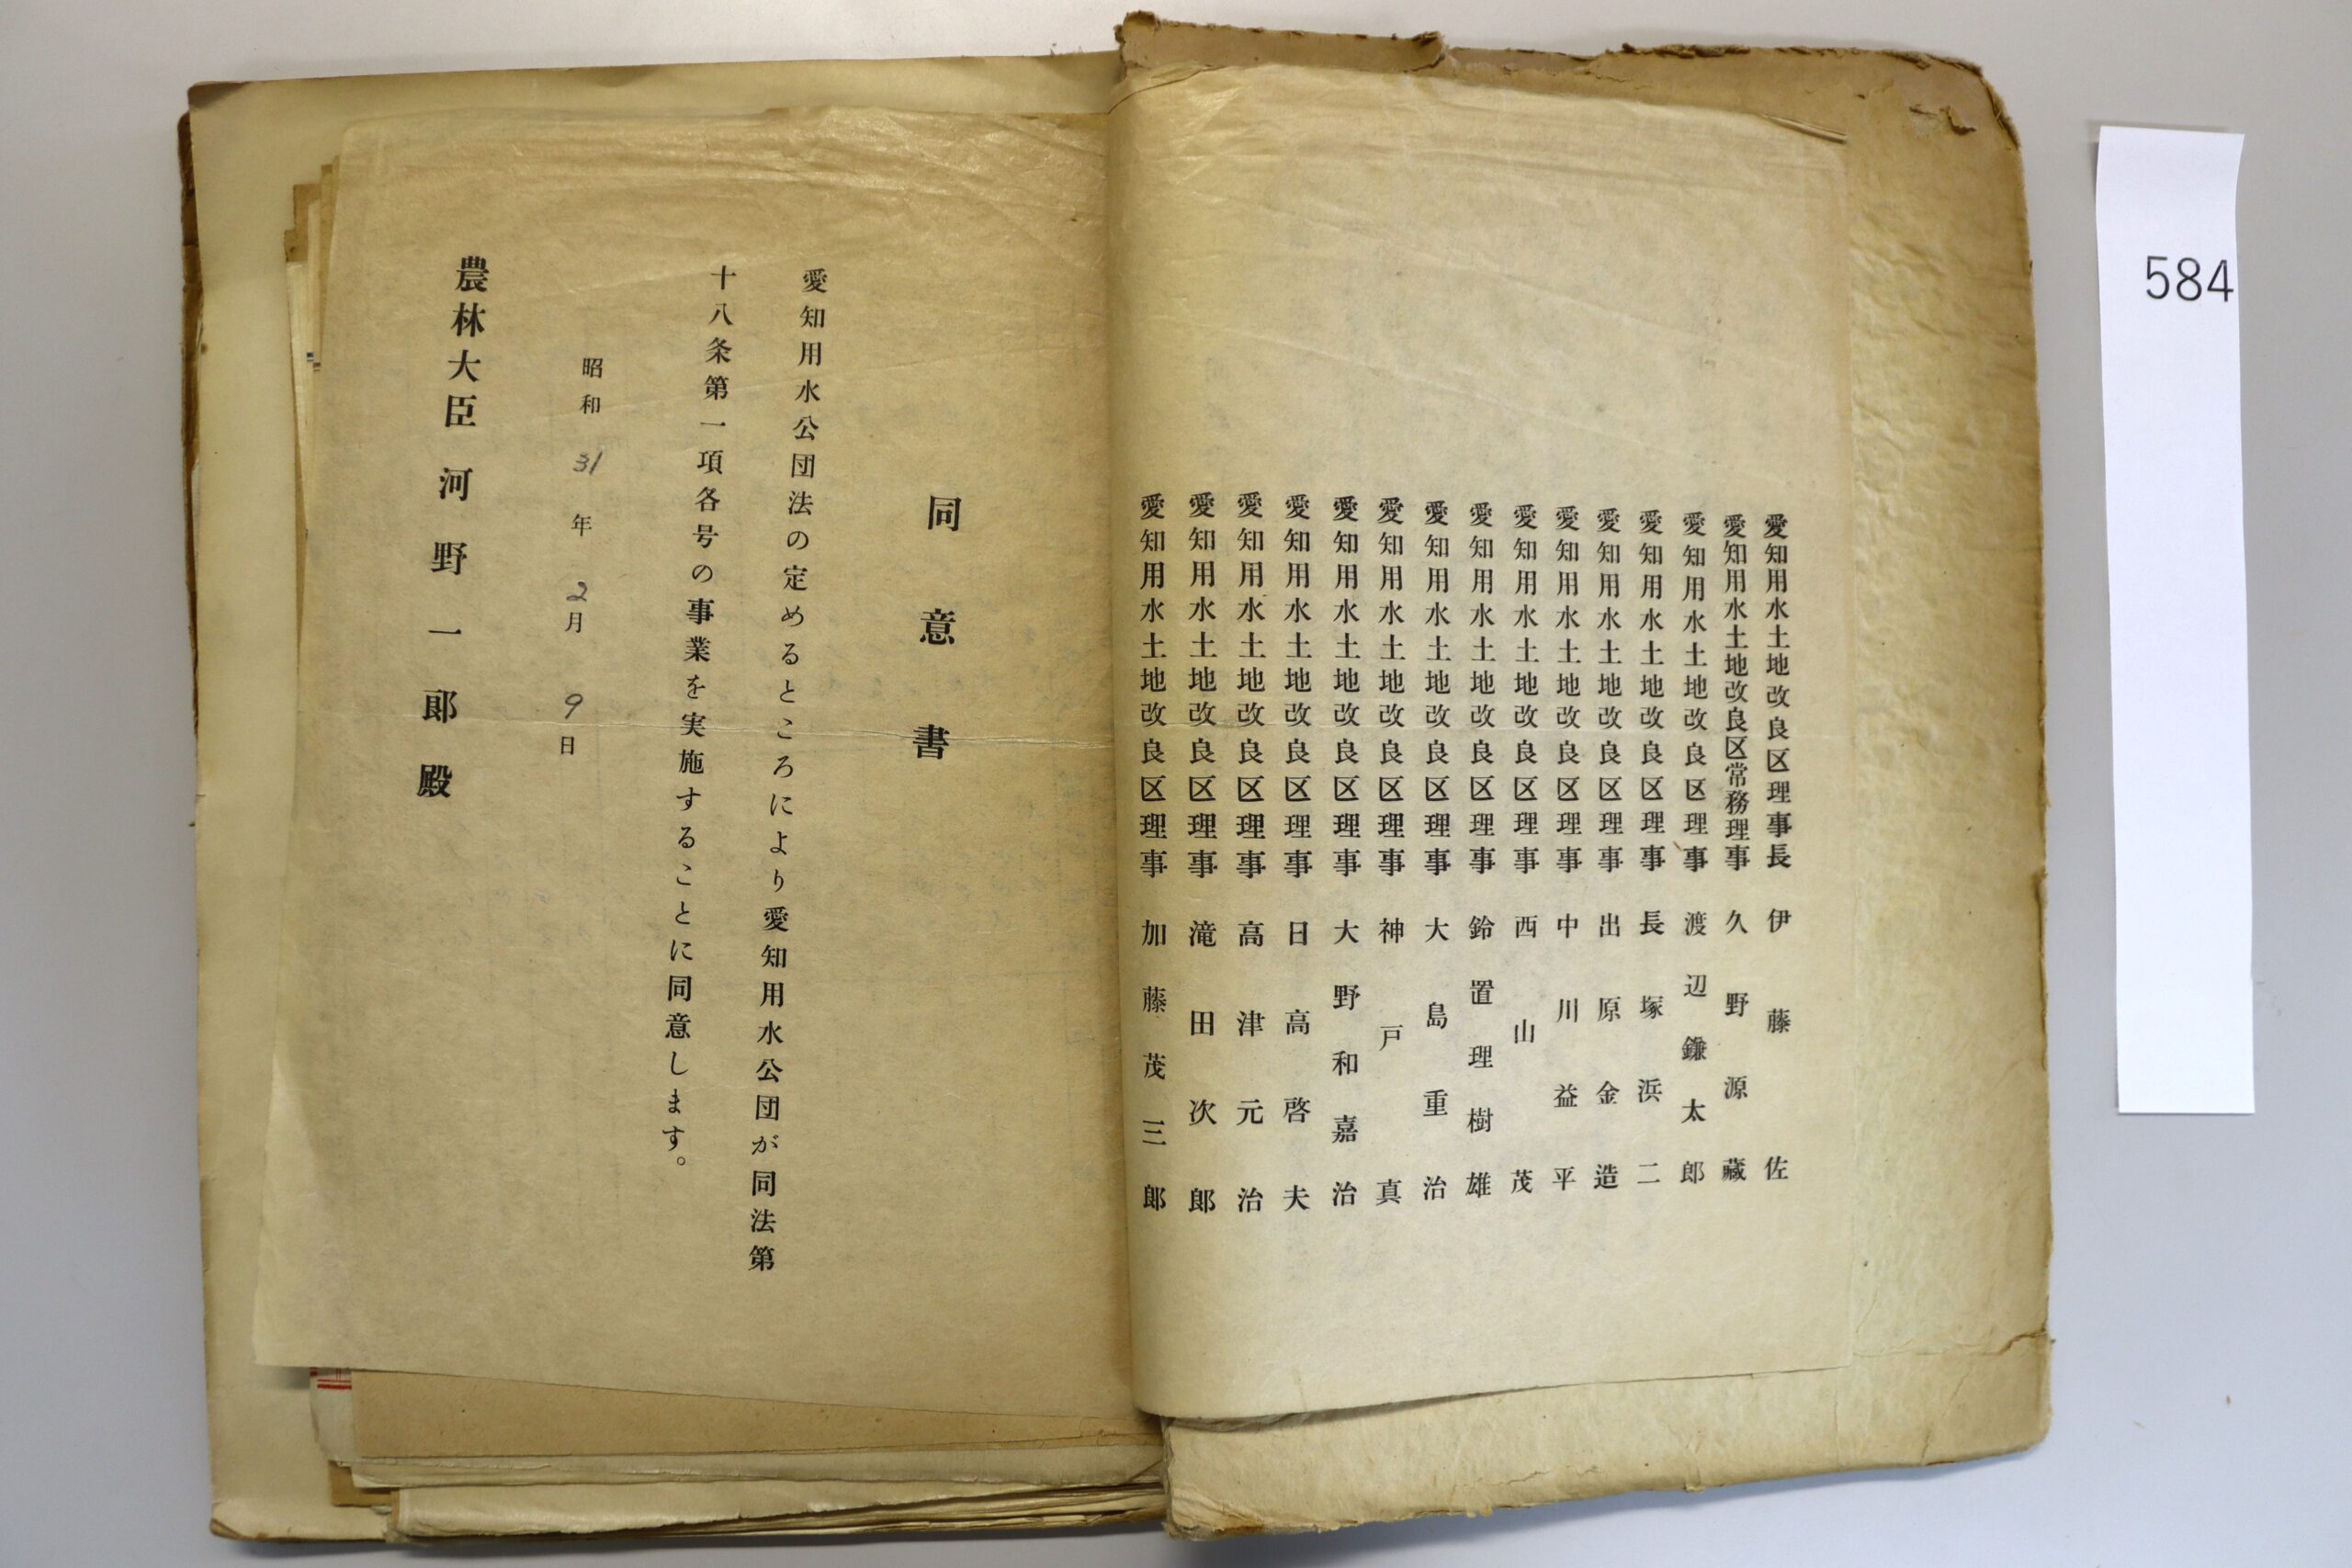 愛知用水土地改良区理事長 伊藤佐
愛知用水土地改良区常務理事 久野源藏
愛知用水土地改良区理事 渡辺鎌太郎
愛知用水土地改良区理事 長塚浜二
愛知用水土地改良区理事 出原金造
愛知用水土地改良区理事 中川益平
愛知用水土地改良区理事 西山茂
愛知用水土地改良区理事 鈴置理樹雄
愛知用水土地改良区理事 大島重治
愛知用水土地改良区理事 神戸真
愛知用水土地改良区理事 大野和嘉治
愛知用水土地改良区理事 日高啓夫
愛知用水土地改良区理事 高津元治
愛知用水土地改良区理事 滝田次郎
愛知用水土地改良区理事 加藤茂三郎
同意書
愛知用水公団法の定めるところにより愛知用水公団が同法第
十八条第一項各号の事業を実施することに同意します。
昭和31年2月9日
農林大臣 河野一郎殿
584